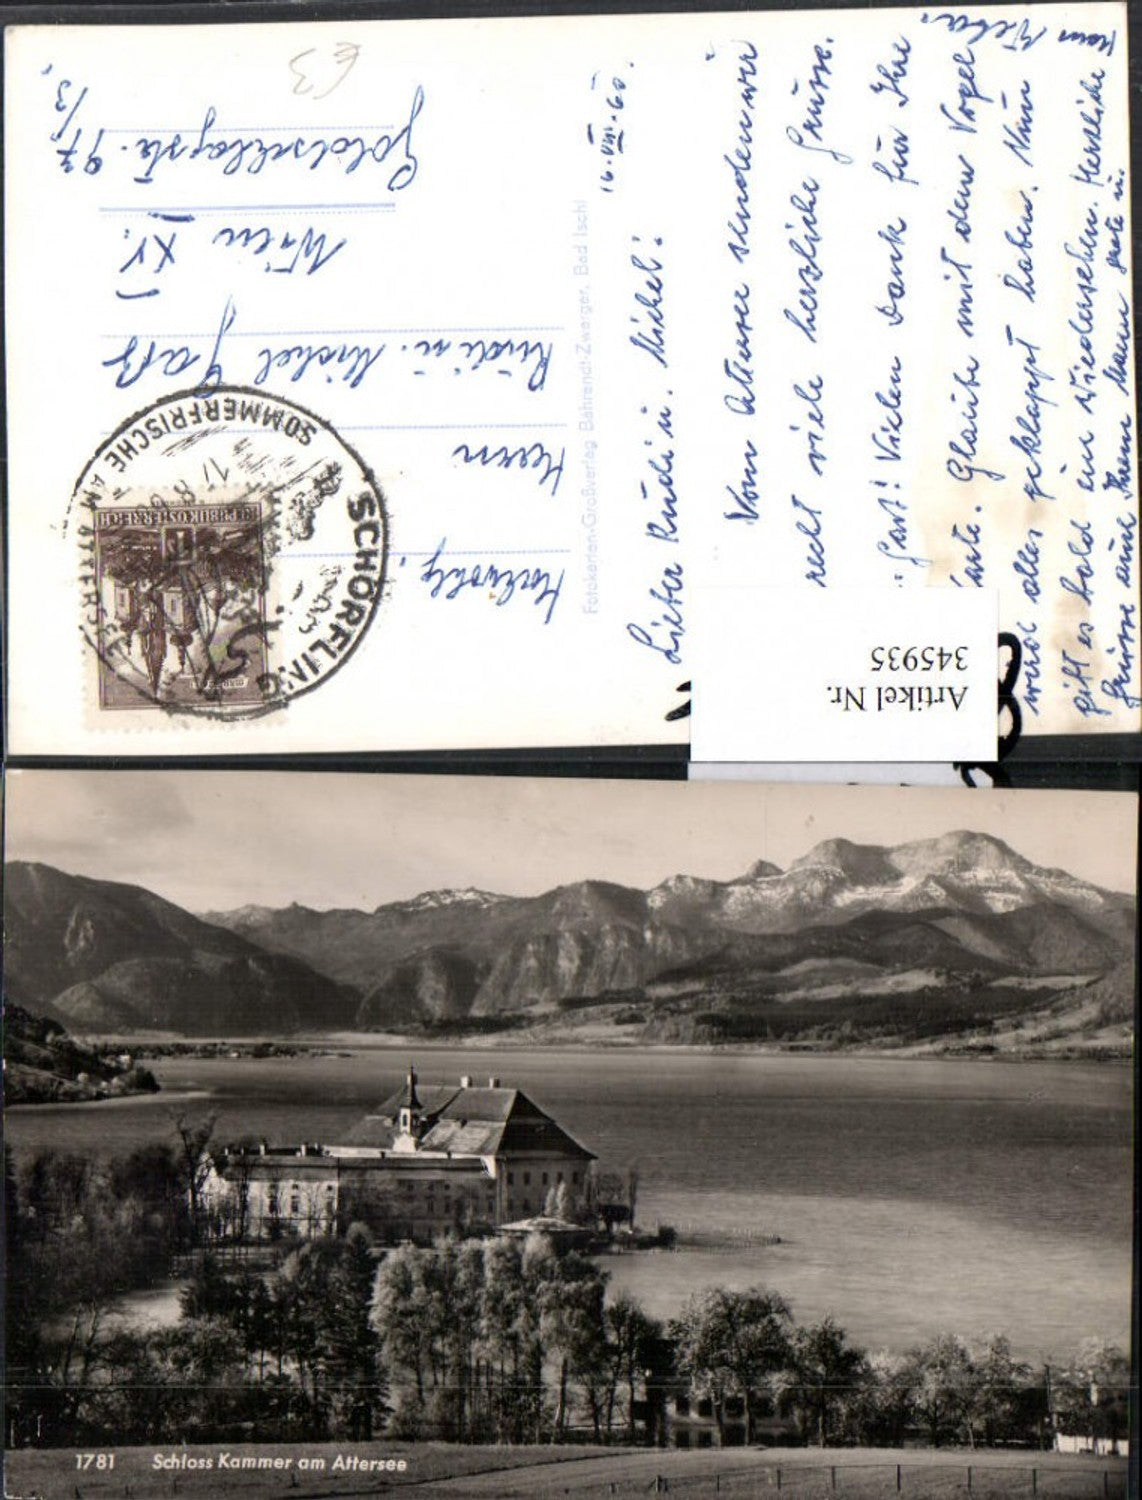 €3
Goldschlagstr. 97
/13.
Wien XV.
Rudi u. Michel Gass
Herrn
SCHÖRFLING
SOMMERFRISCHE AM ATTERSEE
17
REPUBLIK ÖSTERREICH
Fotokarten-Großverlag Bahrendt-Zwerger, Bad Ischl
16.VIII.60.
Lieber Rudi u. Michel!
Vom Attersee senden wir
recht viele herzliche Grüsse.
Vielen Dank für Ihre
Glaubte mit dem Vogel
wird alles geklappt haben. Nun
gibt es bald ein Wiedersehen. Herzliche
Grüsse auch Ihrem Mann
Artikel Nr.
345935
1781 Schloss Kammer am Attersee